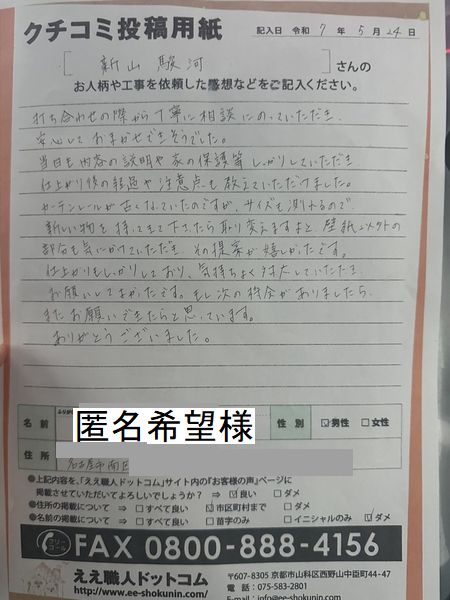 クチコミ投稿用紙
記入日 令和 7 年 5 月 24 日
[ 新山 駿河 ] さんの
お人柄や工事を依頼した感想などをご記入ください。
打ち合わせの際から丁寧に相談にのっていただき、
安心しておまかせできそうでした。
当日も内容の説明や家の保護等しっかりしていただき
仕上がり後の経過や注意点も教えていただけました。
カーテンレールが古くなっていたのですが、サイズも測れるので
新しい物を持ってきて下さったら取り変えますよと、壁紙以外の
部分も気にかけていただき、その提案が嬉しかったです。
仕上がりもしっかりしており、気持ちよく対応していただき、
お願いしてよかったです。もし次の機会がありましたら、
またお願いできたらと思っています。
ありがとうございました。
名前
匿名希望様
性別 ☑男性 □女性
住所 名古屋市南区
●上記内容を、「ええ職人ドットコム」サイト内の『お客様の声』ページに
掲載させていただいてよろしいでしょうか? ⇒ ☑良い □ダメ
●住所の掲載について ⇒ □すべて良い ☑市区町村まで □ダメ
●名前の掲載について ⇒ □すべて良い □苗字のみ □イニシャルのみ ☑ダメ
フリーコール
FAX 0800-888-4156
ええ職人ドットコム
http://www.ee-shokunin.com/
〒607-8305 京都市山科区西野山中臣町44-47
電話:075-583-2801
E-mail:info@ee-shokunin.com